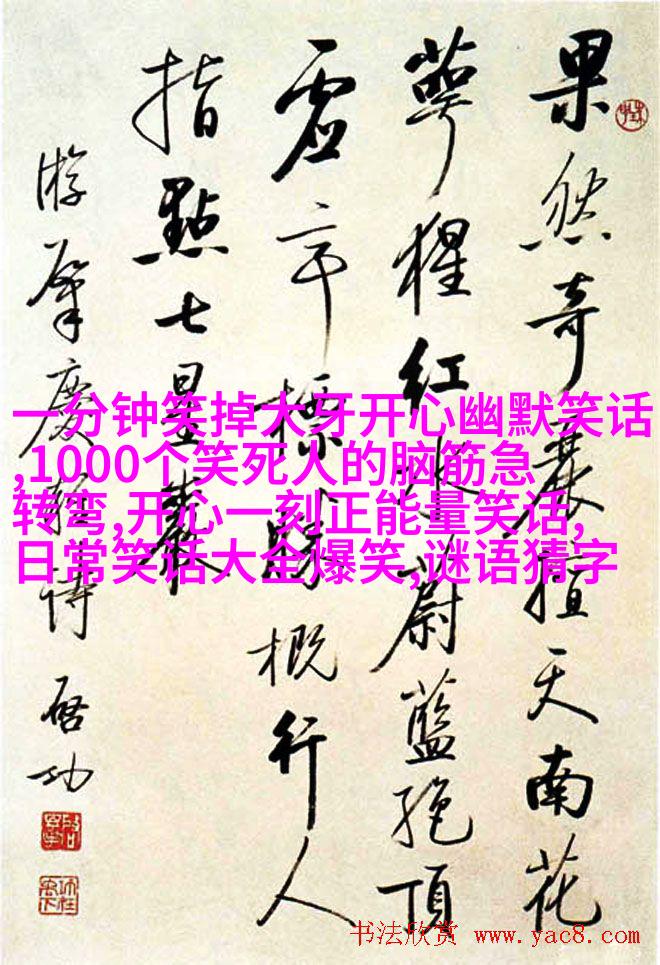 果然奇麗擅天南花
萼猩红蔚藍絶頂
虚亭標勝概行人
指點七星巖
游肇慶詩 啓功
一分钟笑掉大牙开心幽默笑话
,1000个笑死人的脑筋急
转弯,开心一刻正能量笑话,
日常笑话大全爆笑,谜语猜字
书法欣赏 www.yac8.com